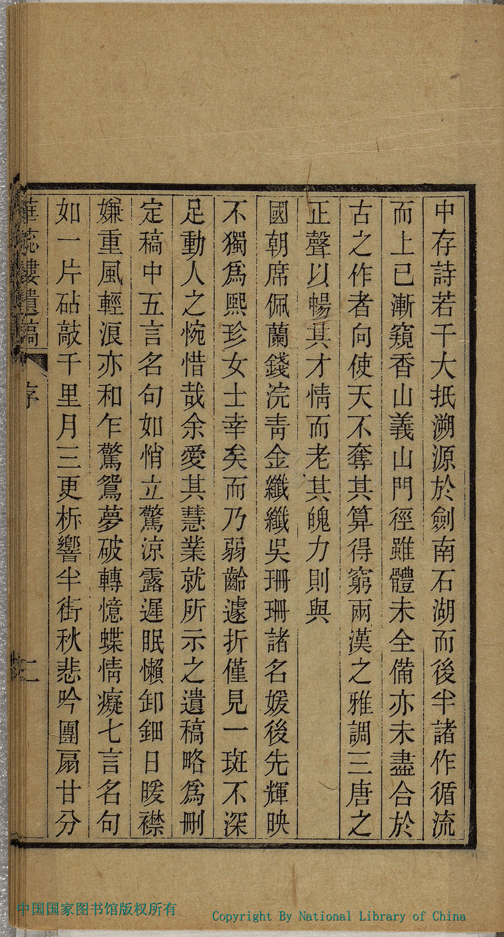 中存詩若干大抵溯源於劍南石湖而後半諸作循流
而上已漸窺香山義山門徑雖體未全備亦未盡合於
古之作者向使天不奪其算得窮兩漢之雅調三唐之
正聲以暢其才情而老其魄力則與
國朝席佩蘭錢浣青金纖纖吳珊珊諸名媛後先輝映
不獨為熙珍女士幸矣而乃弱齡遽折僅見一斑不深
足動人之惋惜哉余愛其慧業就所示之遺稿略為刪
定稿中五言名句如悄立驚涼露遲眠懶卸鈿日暖襟
嫌重風輕浪亦和乍驚鴛夢破轉憶蝶情癡七言名句
如一片砧敲千里月三更柝響半街秋悲吟團扇甘分
華蕊樓遺稿 序 二
中国国家图书馆版权所有
Copyright By National Library of China